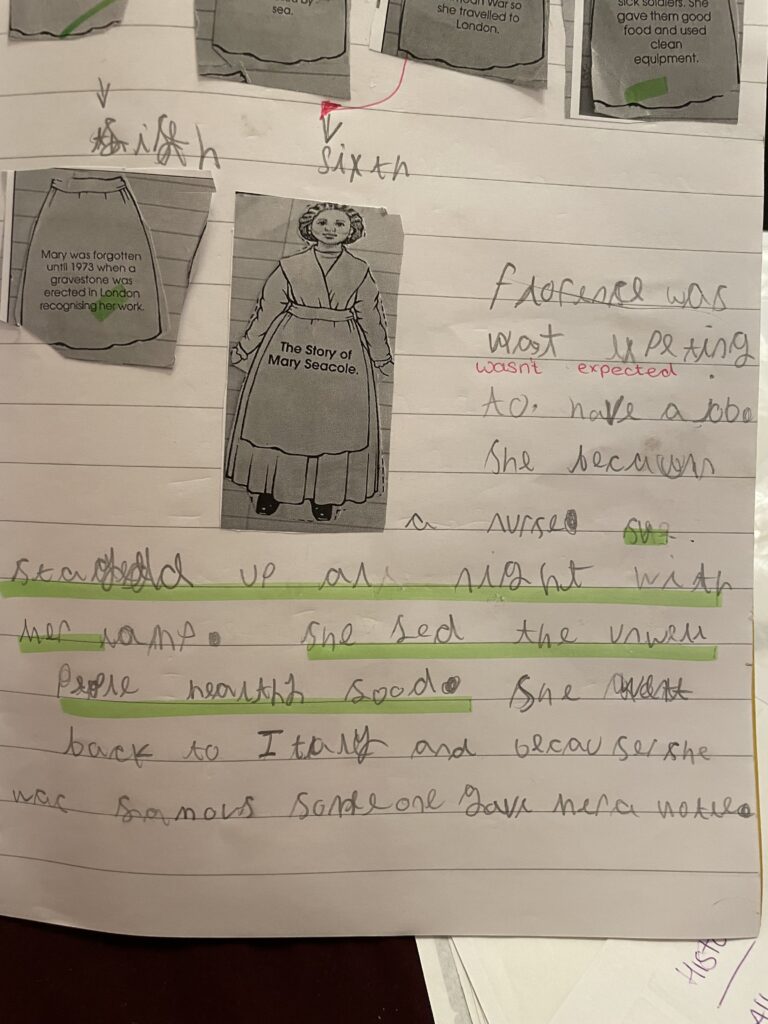 sea.
War so
she travelled to
London.
sick soldiers. She
gave them good
food and used
clean
equipment.
fifth
sixth
Mary was forgotten
until 1973 when a
gravestone was
erected in London
recognising her work.
The Story of
Mary Seacole.
florence was
wost xpeting
wasn't expected
to. have a jobe
She becaum
a nurse she.
stayed up all night with
her lamp. she fed the unwell
people healthy food. She went
back to Italy and because she
was famous someone gave her a notie